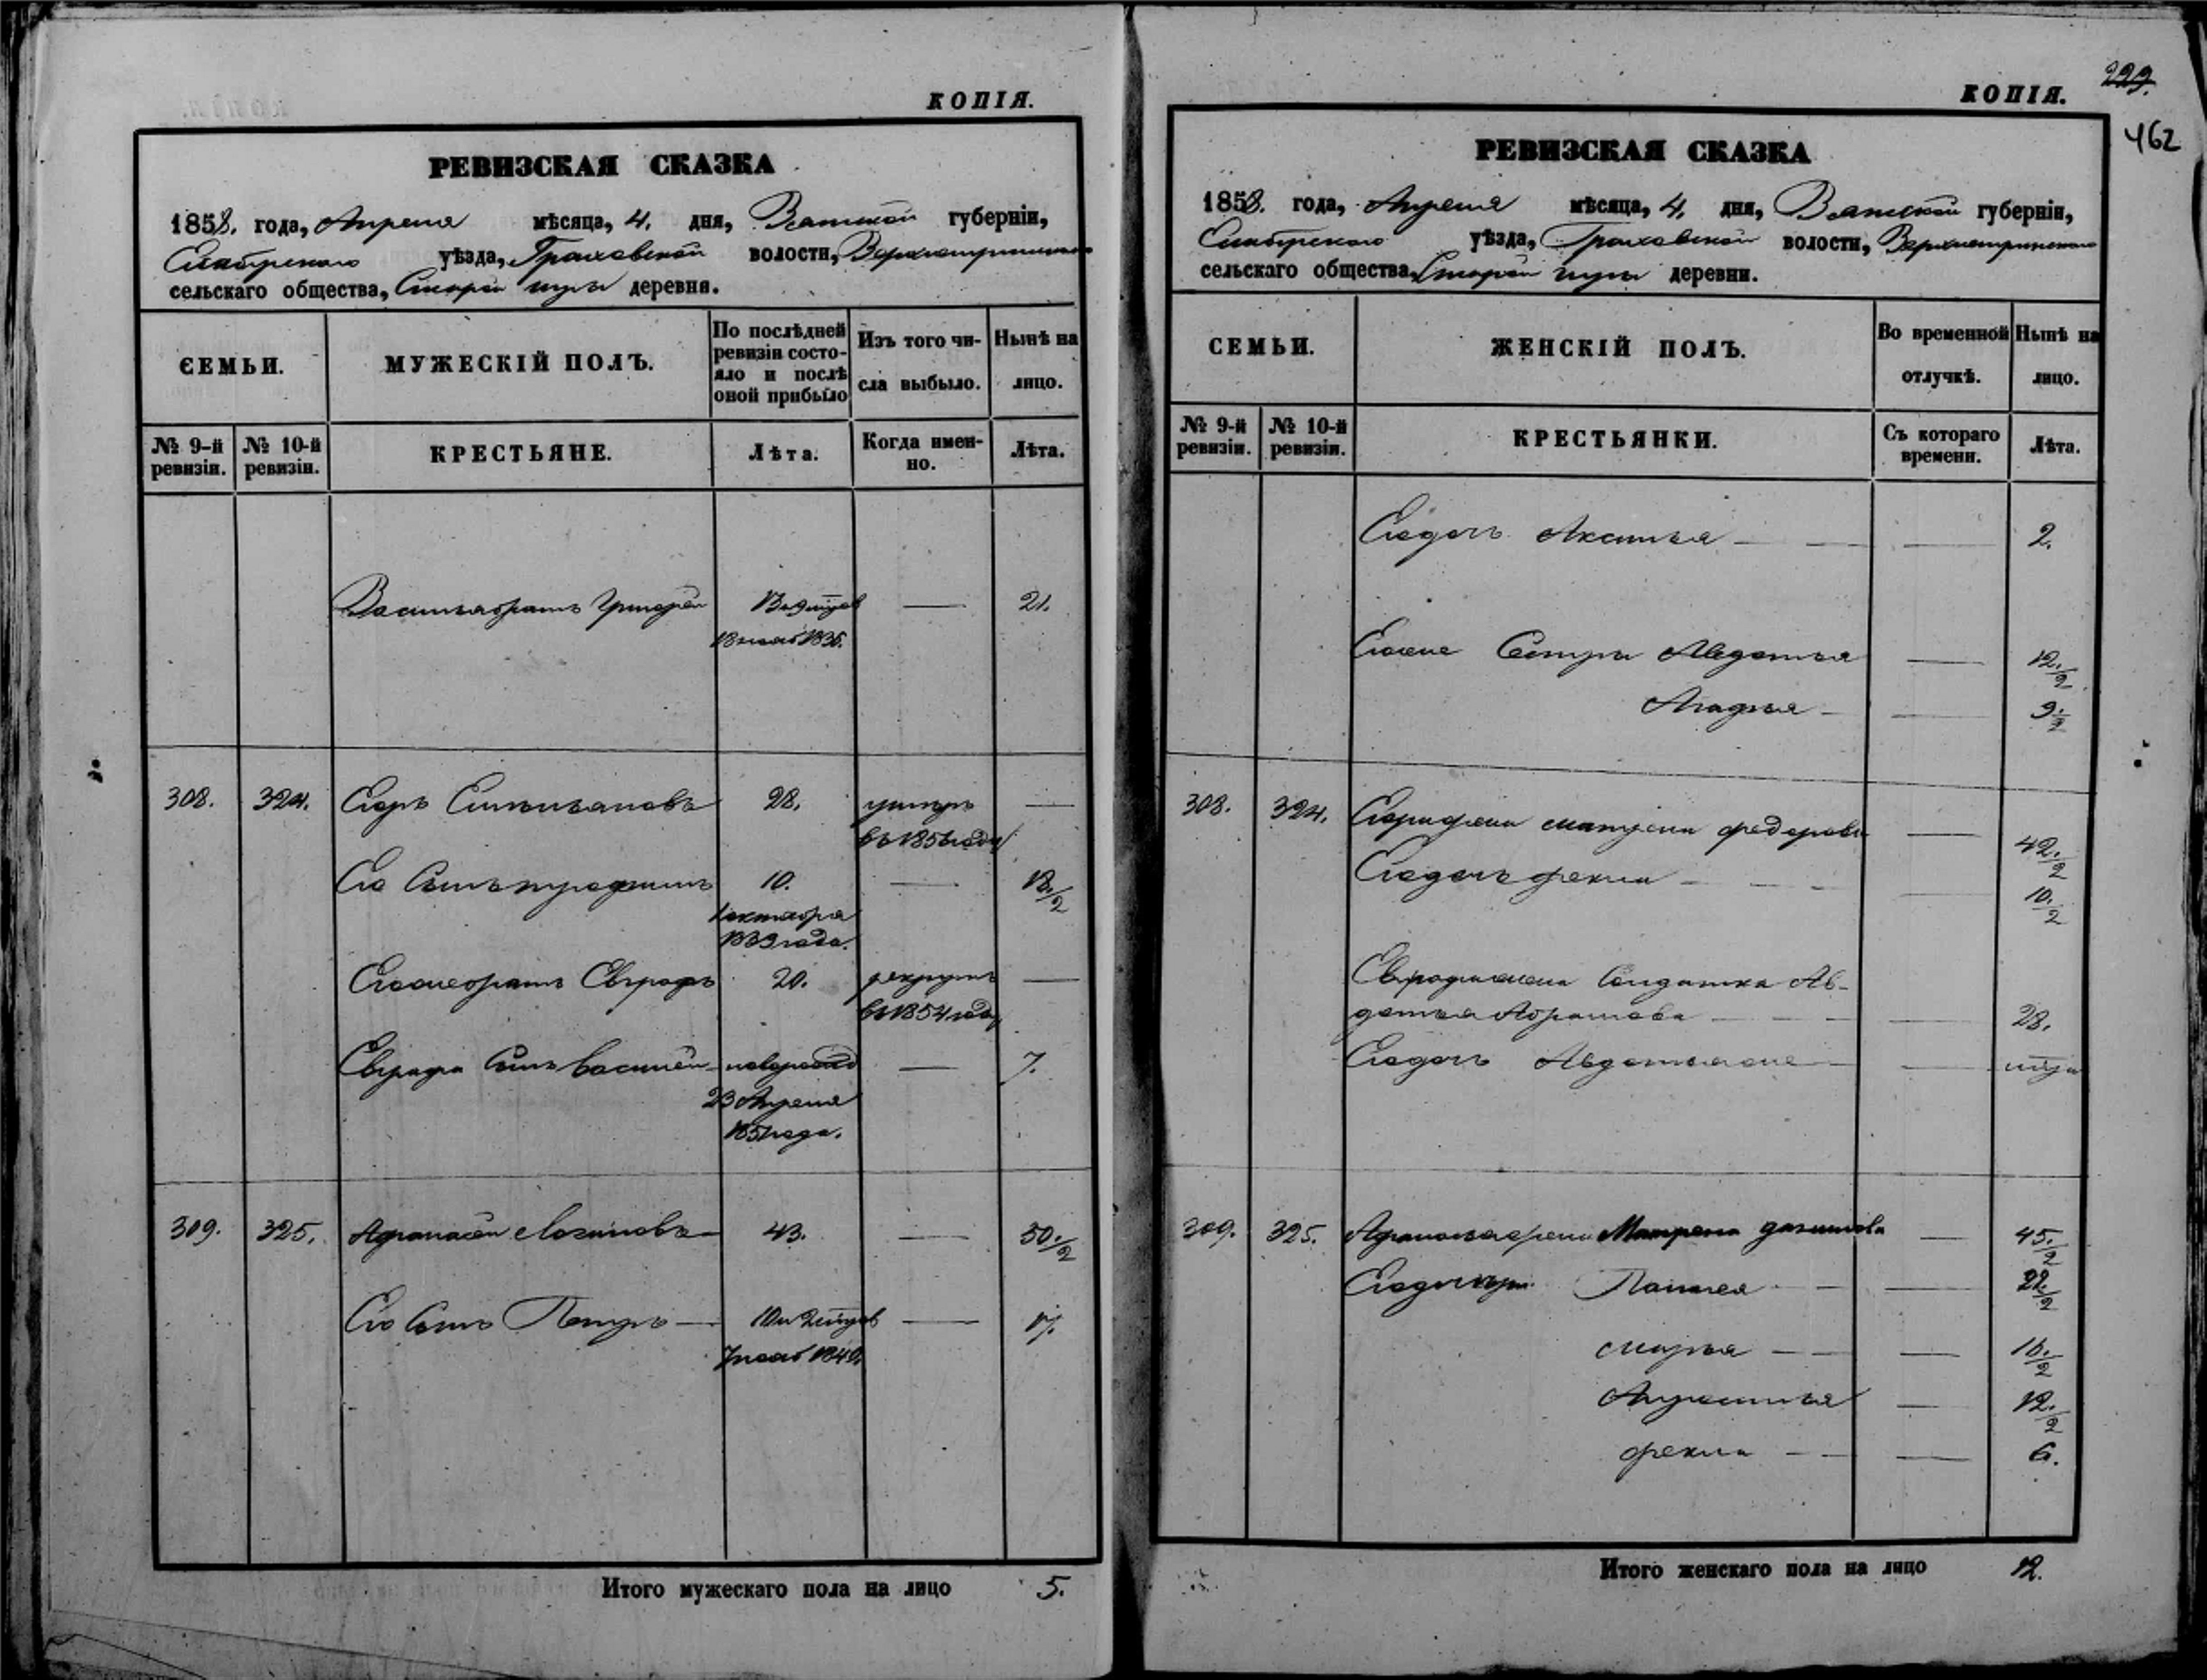 КОПІЯ.
РЕВИЗСКАЯ СКАЗКА
1858. года, Апреля мѣсяца, 4. дня, Вятской губерніи,
Елабугскаго уѣзда, Граховской волости,
сельскаго общества, Старой деревня.
СЕМЬИ.
МУЖЕСКІЙ ПОЛЪ.
По послѣдней ревизіи состо-яло и послѣ оной прибыло
Изъ того чи-сла выбыло.
Нынѣ на лицо.
№ 9-й ревизіи.
№ 10-й ревизіи.
КРЕСТЬЯНЕ.
Лѣта.
Когда имен-но.
Лѣта.
братъ Григорей — 21.
308. 324. Егоръ 28. умеръ —
въ 185 году
Его Сынъ Трофимъ 10. — 18.½
1 октября
1839 года.
Егоже братъ Евграфъ 20. рекрутъ —
въ 1854 году
Евграфа Сынъ Василей новорожд — 7.
23 Апреля
1851 года.
309. 325. Афанасей Логиновъ 43. — 50.½
Его Сынъ Петръ — 17.
Итого мужескаго пола на лицо 5.
229.
КОПІЯ.
462
РЕВИЗСКАЯ СКАЗКА
1858. года, Апреля мѣсяца, 4. дня, Вятской губерніи,
Елабугскаго уѣзда, Граховской волости,
сельскаго общества, Старой деревни.
СЕМЬИ.
ЖЕНСКІЙ ПОЛЪ.
Во временной отлучкѣ.
Нынѣ на лицо.
№ 9-й ревизіи.
№ 10-й ревизіи.
КРЕСТЬЯНКИ.
Съ котораго времени.
Лѣта.
Егодочь Аксинья — — 2.
Егоже Сестры Авдотья — 12.½
Агафья — — 9.½
308. 324. Егора жена Матрена Федорова — 42.½
Егодочь Фекла — — 10.½
Евграфа жена Солдатка Ав-
дотья Абрамова — — 28.
Егодочь Авдотья же — —
309. 325. Матрена — 45.½
Егодочери Палагея — — 22.½
Марья — — 16.½
— 12.½
Фекла — — 6.
Итого женскаго пола на лицо 12.